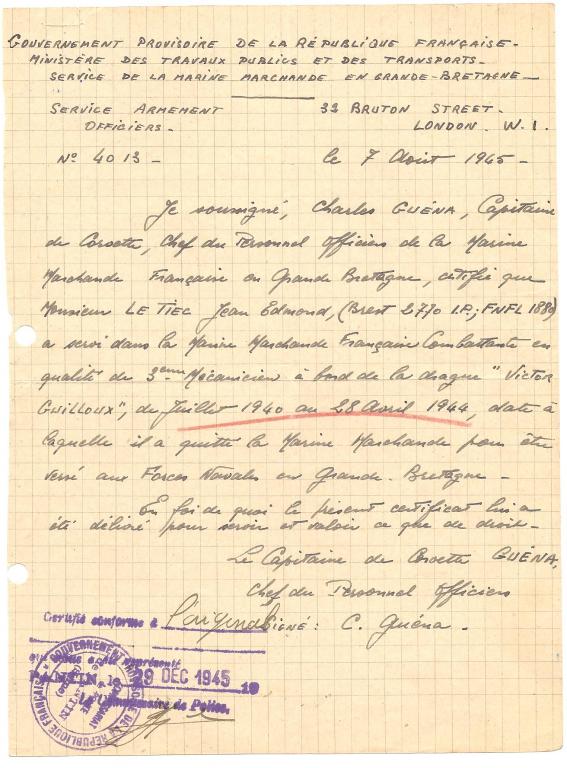 GOUVERNEMENT PROVISOIRE DE LA RÉPUBLIQUE FRANÇAISE -
MINISTÈRE DES TRAVAUX PUBLICS ET DES TRANSPORTS -
SERVICE DE LA MARINE MARCHANDE EN GRANDE-BRETAGNE -
SERVICE ARMEMENT 33 BRUTON STREET -
OFFICIERS - LONDON. W.1.
N° 4013 - le 7 Août 1945 -
Je soussigné, Charles GUÉNA, Capitaine
de Corvette, Chef du Personnel Officiers de la Marine
Marchande Française en Grande Bretagne, certifie que
Monsieur LE TIEC Jean Edmond, (Brest 2770 I.P.; FNFL 1880)
a servi dans la Marine Marchande Française Combattante en
qualité de 3eme Mécanicien à bord de la drague "VICTOR
GUILLOUX", de Juillet 1940 au 28 Avril 1944, date à
laquelle il a quitté la Marine Marchande pour être
versé aux Forces Navales en Grande-Bretagne -
En foi de quoi le présent certificat lui a
été délivré pour servir et valoir ce que de droit -
Le Capitaine de Corvette GUÉNA,
Chef du Personnel Officiers
SIGNÉ : C. Guéna -
Certifié conforme à l'original
qui nous a été représenté
PANTIN, le 29 DEC 1945 19
Le Commissaire de Police,
GOUVERNEMENT PROVISOIRE DE LA RÉPUBLIQUE FRANÇAISE
COMMISSARIAT
PANTIN